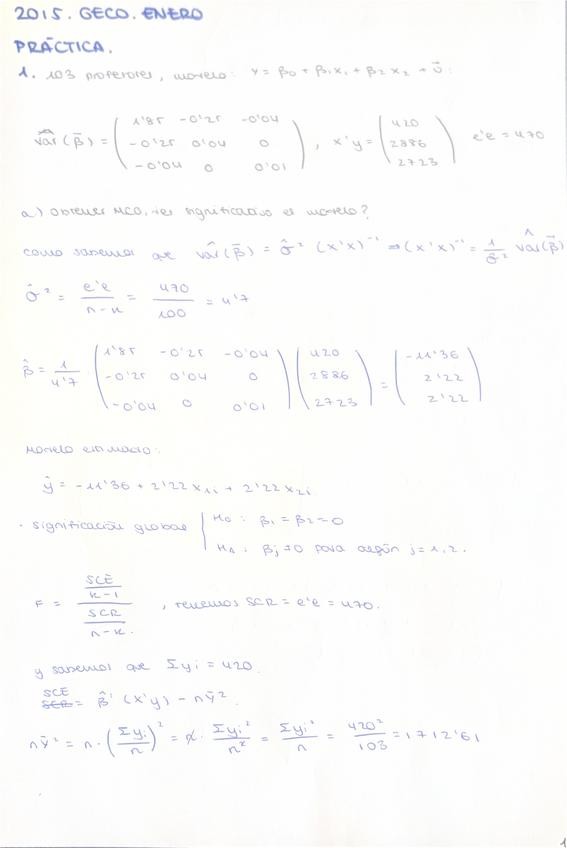 2015. GECO. ENERO
PRÁCTICA.
1. 103 profesores, modelo: Y = β0 + β1x1 + β2x2 + u:
var(β) = ( 1'85 -0'25 -0'04
-0'25 0'04 0
-0'04 0 0'01 ) , x'y = ( 420
2886
2723 ) e'e = 470
a) Obtener MCO, ¿es significativo el modelo?
como sabemos que var(β) = σ̂² (x'x)⁻¹ ⇒ (x'x)⁻¹ = 1/σ̂² var(β)
σ̂² = e'e / n-k = 470 / 100 = 4'7
β̂ = 1/4'7 ( 1'85 -0'25 -0'04
-0'25 0'04 0
-0'04 0 0'01 ) ( 420
2886
2723 ) = ( -11'36
2'22
2'22 )
Modelo estimado:
ŷ = -11'36 + 2'22 x1i + 2'22 x2i
· significación global { H0: β1 = β2 = 0
HA: βj ≠ 0 para algún j = 1, 2.
F = SCE / k-1 / SCR / n-k. , tenemos SCR = e'e = 470.
y sabemos que Σyi = 420.
SCE = β̂' (x'y) - nȳ².
nȳ² = n · (Σyi / n)² = n · Σyi² / n² = Σyi² / n = 420² / 103 = 1712'61
1